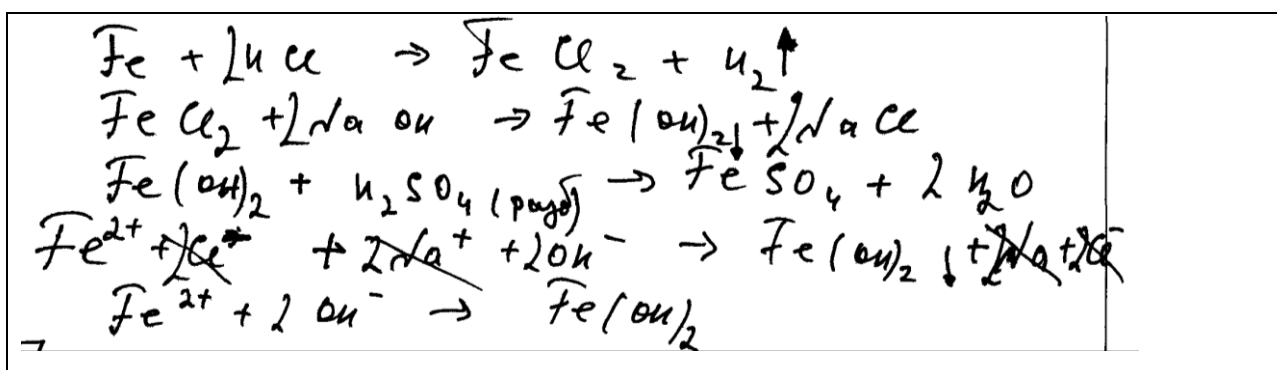 Fe + 2HCl → FeCl₂ + H₂↑
FeCl₂ + 2NaOH → Fe(OH)₂↓ + 2NaCl
Fe(OH)₂ + H₂SO₄ (разб) → FeSO₄ + 2H₂O
Fe²⁺ + 2Cl⁻ + 2Na⁺ + 2OH⁻ → Fe(OH)₂↓ + 2Na + 2Cl⁻
Fe²⁺ + 2OH⁻ → Fe(OH)₂